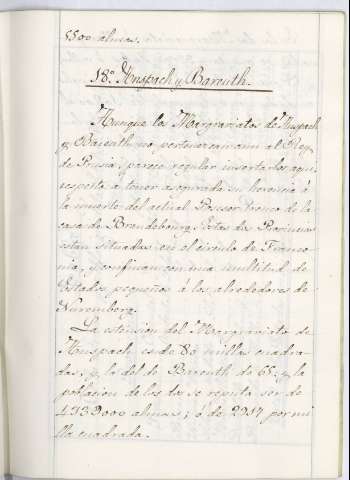 8500 almas.
18.º Anspach y Bareuth.
Aunque los Margraviatos de Anspach
y Bareuth no pertenecen aun al Rey
de Prusia, parece regular insertarlos aqui
respeto a tener asegurada su herencia á
la muerte del actual Posesor tronco de la
casa de Brandebourg. Estas dos Provincias
estan situadas en el circulo de Franco-
nia, y confinan con una multitud de
Estados pequeños á los alrededores de
Nuremberg.
La estension del Margraviato de
Anspach es de 80 millas cuadra-
das, y la del de Bareuth de 65; y la
poblacion de los dos se reputa ser de
423000 almas; ó de 2917 por mi-
lla cuadrada.